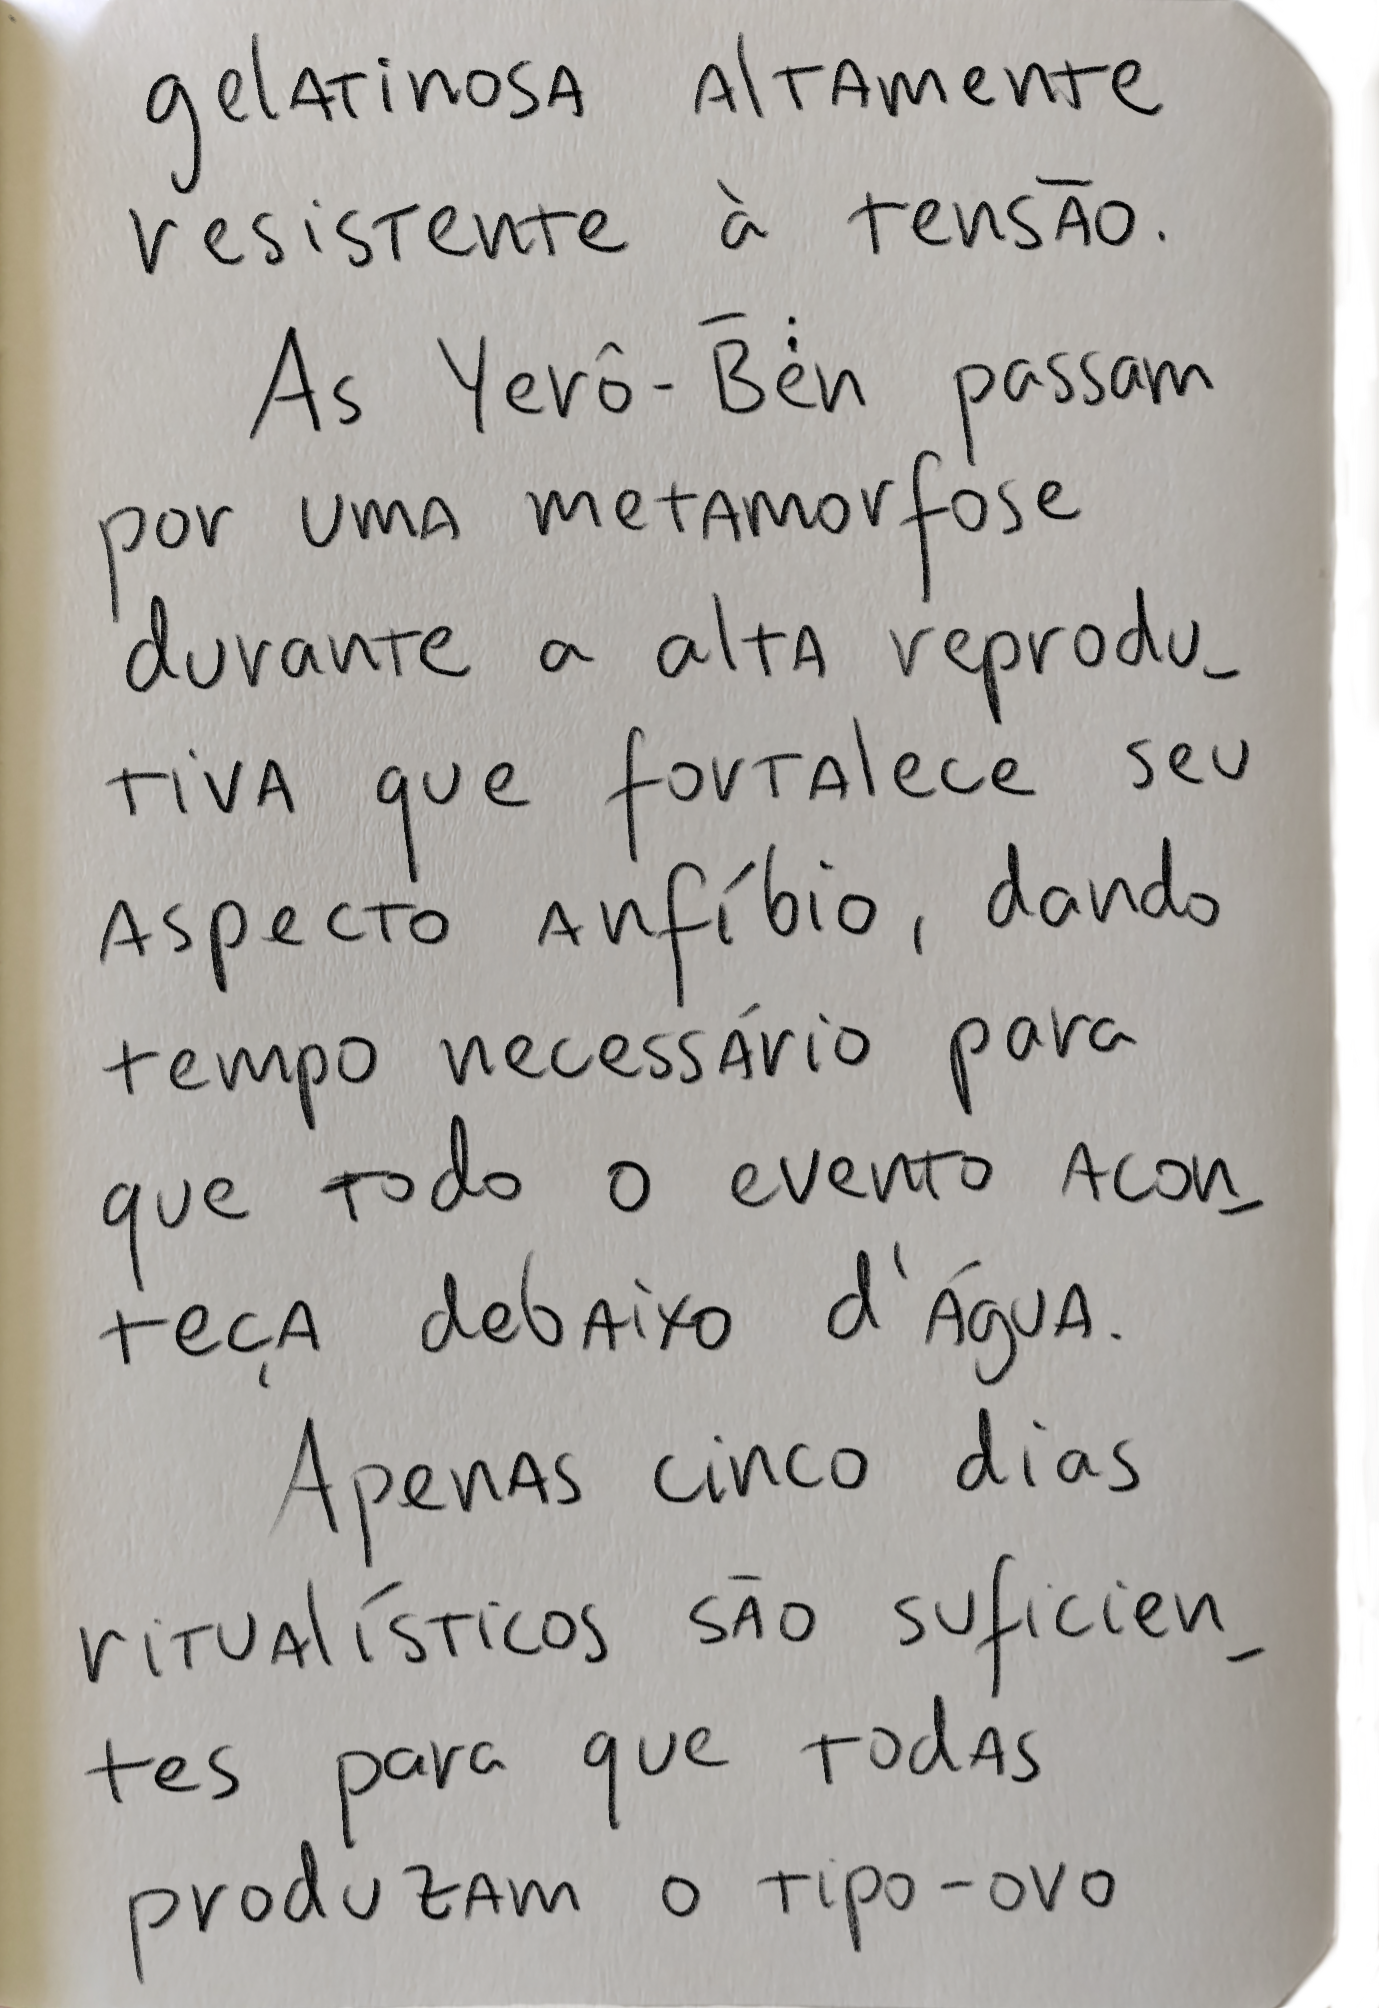 gelatinosa altamente
resistente à tensão.
As Yerô-B̄ėn passam
por uma metamorfose
durante a alta reprodu-
tiva que fortalece seu
aspecto anfíbio, dando
tempo necessário para
que todo o evento acon-
teça debaixo d'água.
Apenas cinco dias
ritualísticos são suficien-
tes para que todas
produzam o tipo-ovo